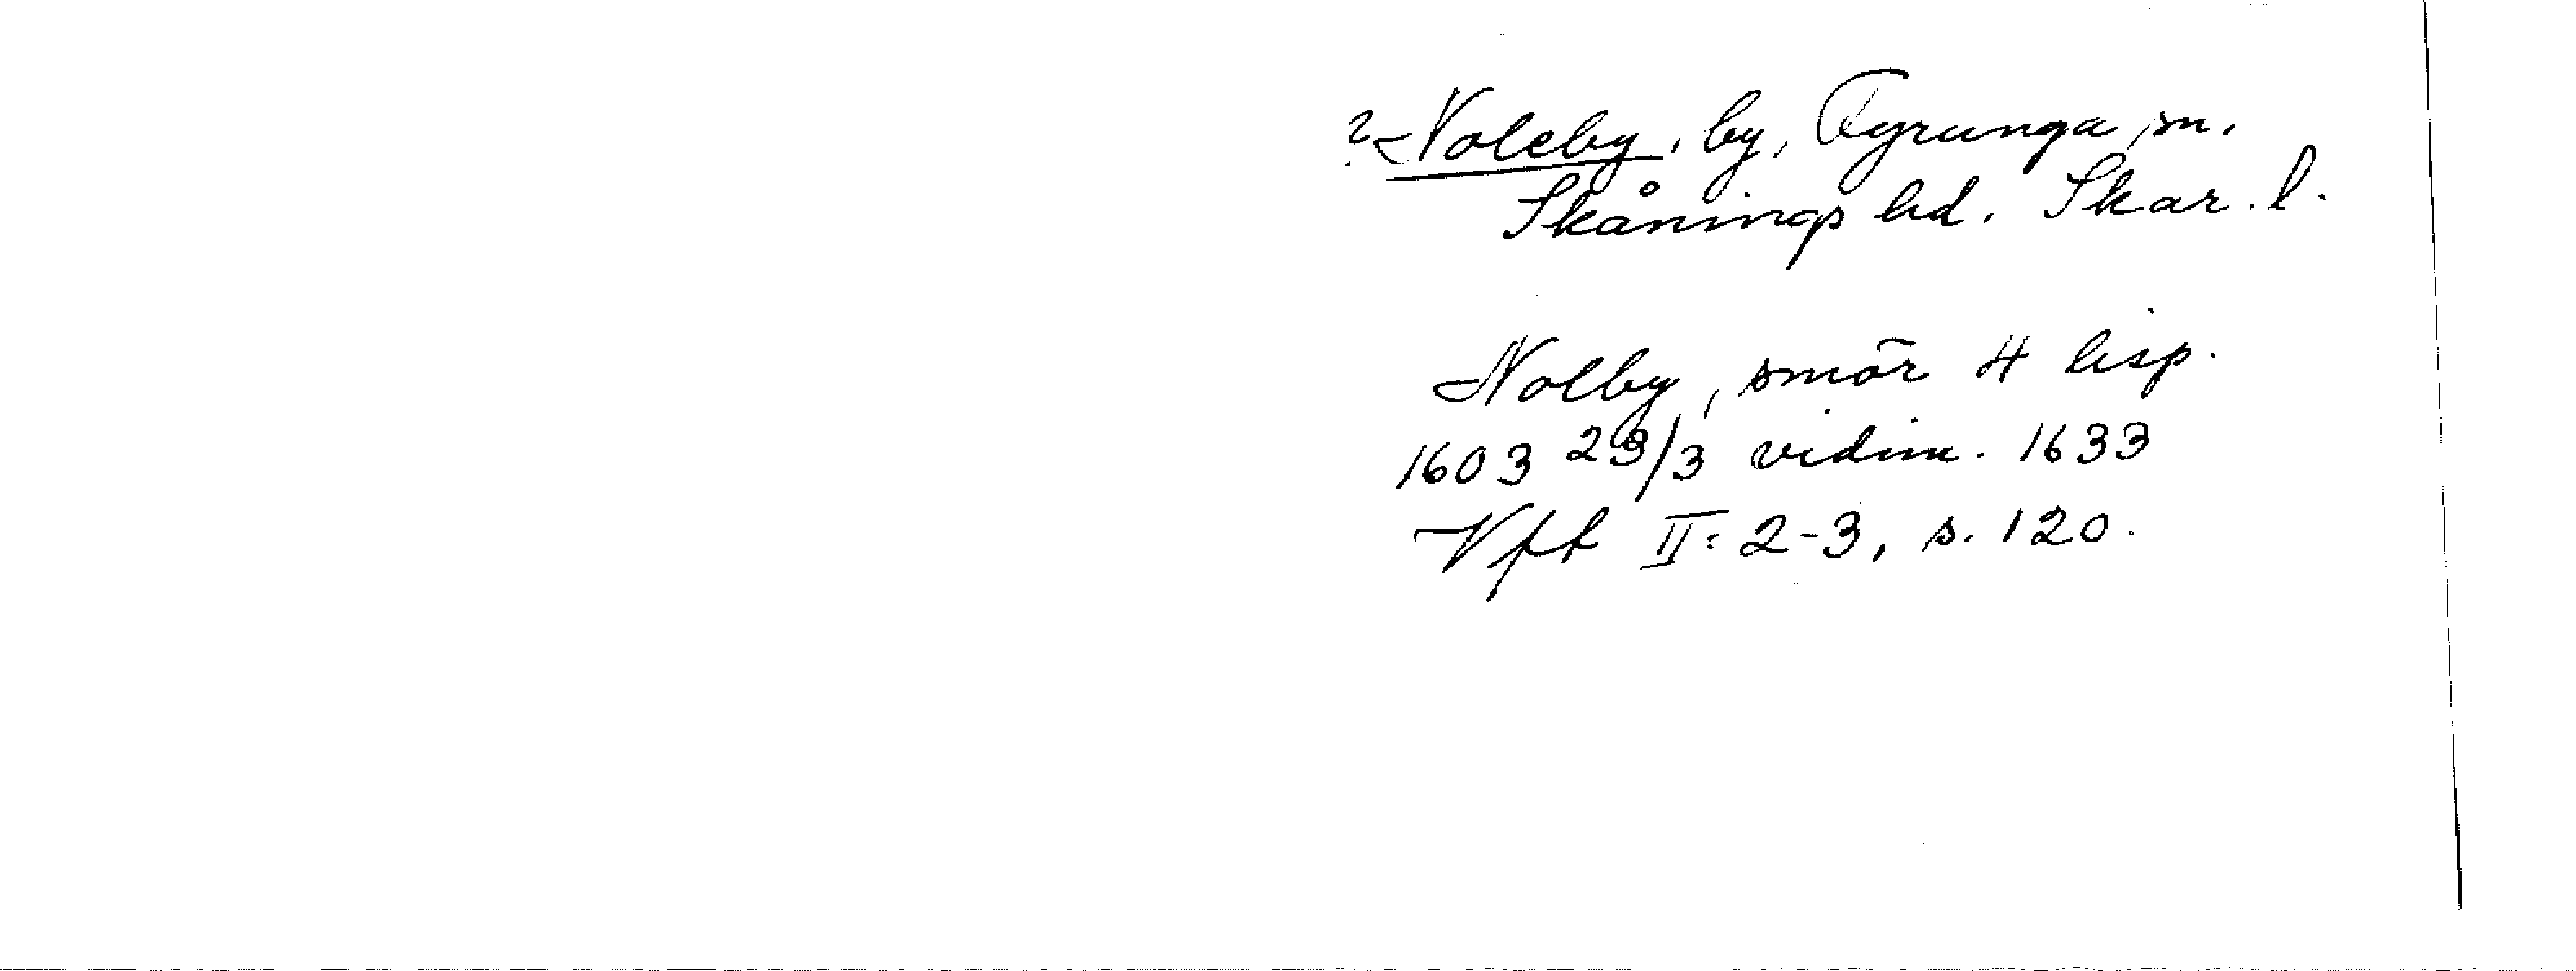 ? Noleby, by, Fyrunga sn.
Skånings hd. Skar. l.
Nolby, smör 4 lisp.
1603 23/3 vidim. 1633
Vfft II: 2-3, s. 120.